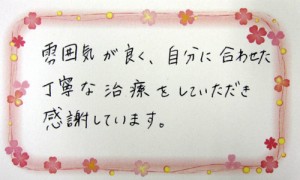 雰囲気が良く、自分に合わせた
丁寧な治療をしていただき
感謝しています。